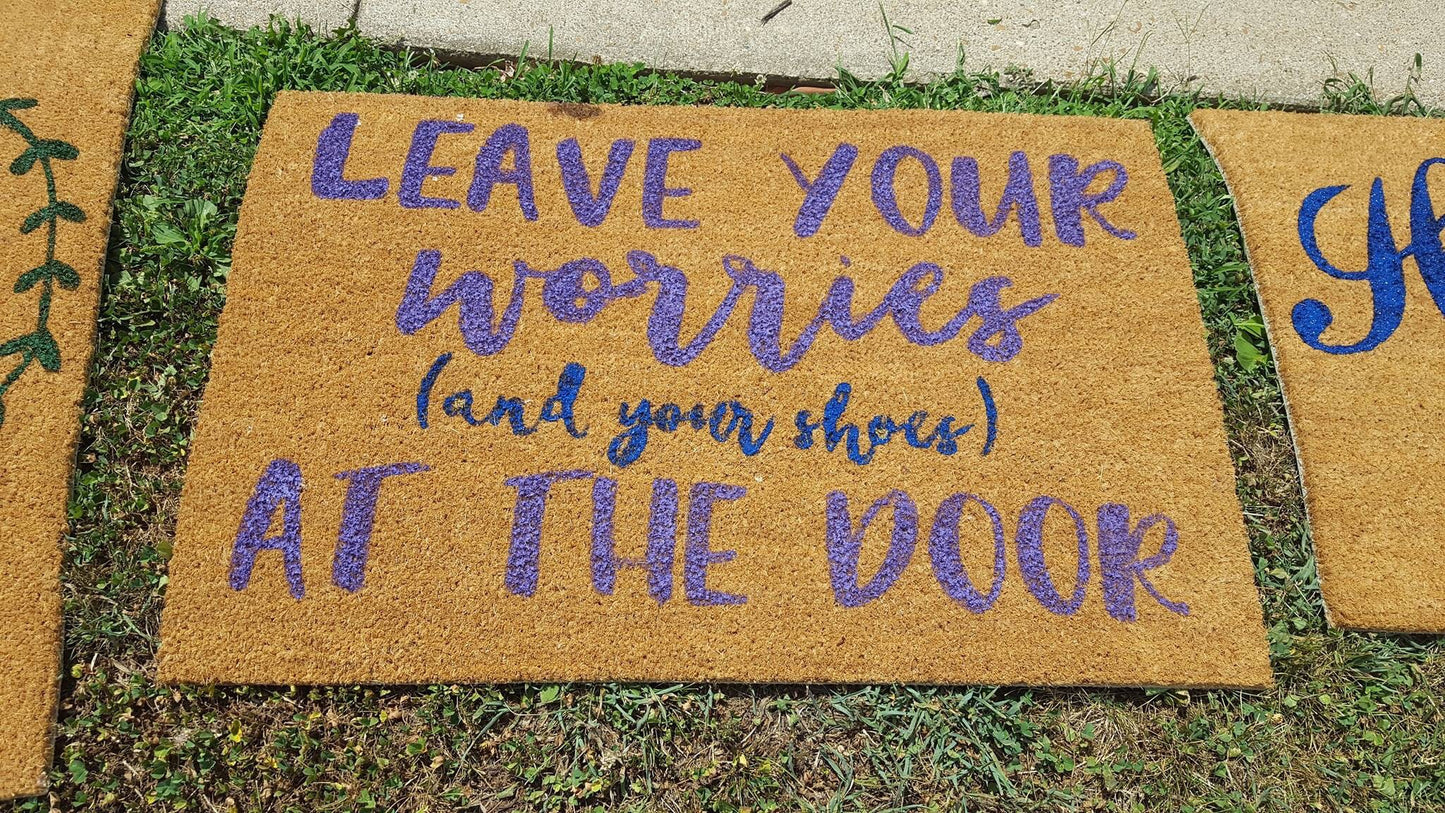 LEAVE YOUR
worries
(and your shoes)
AT THE DOOR